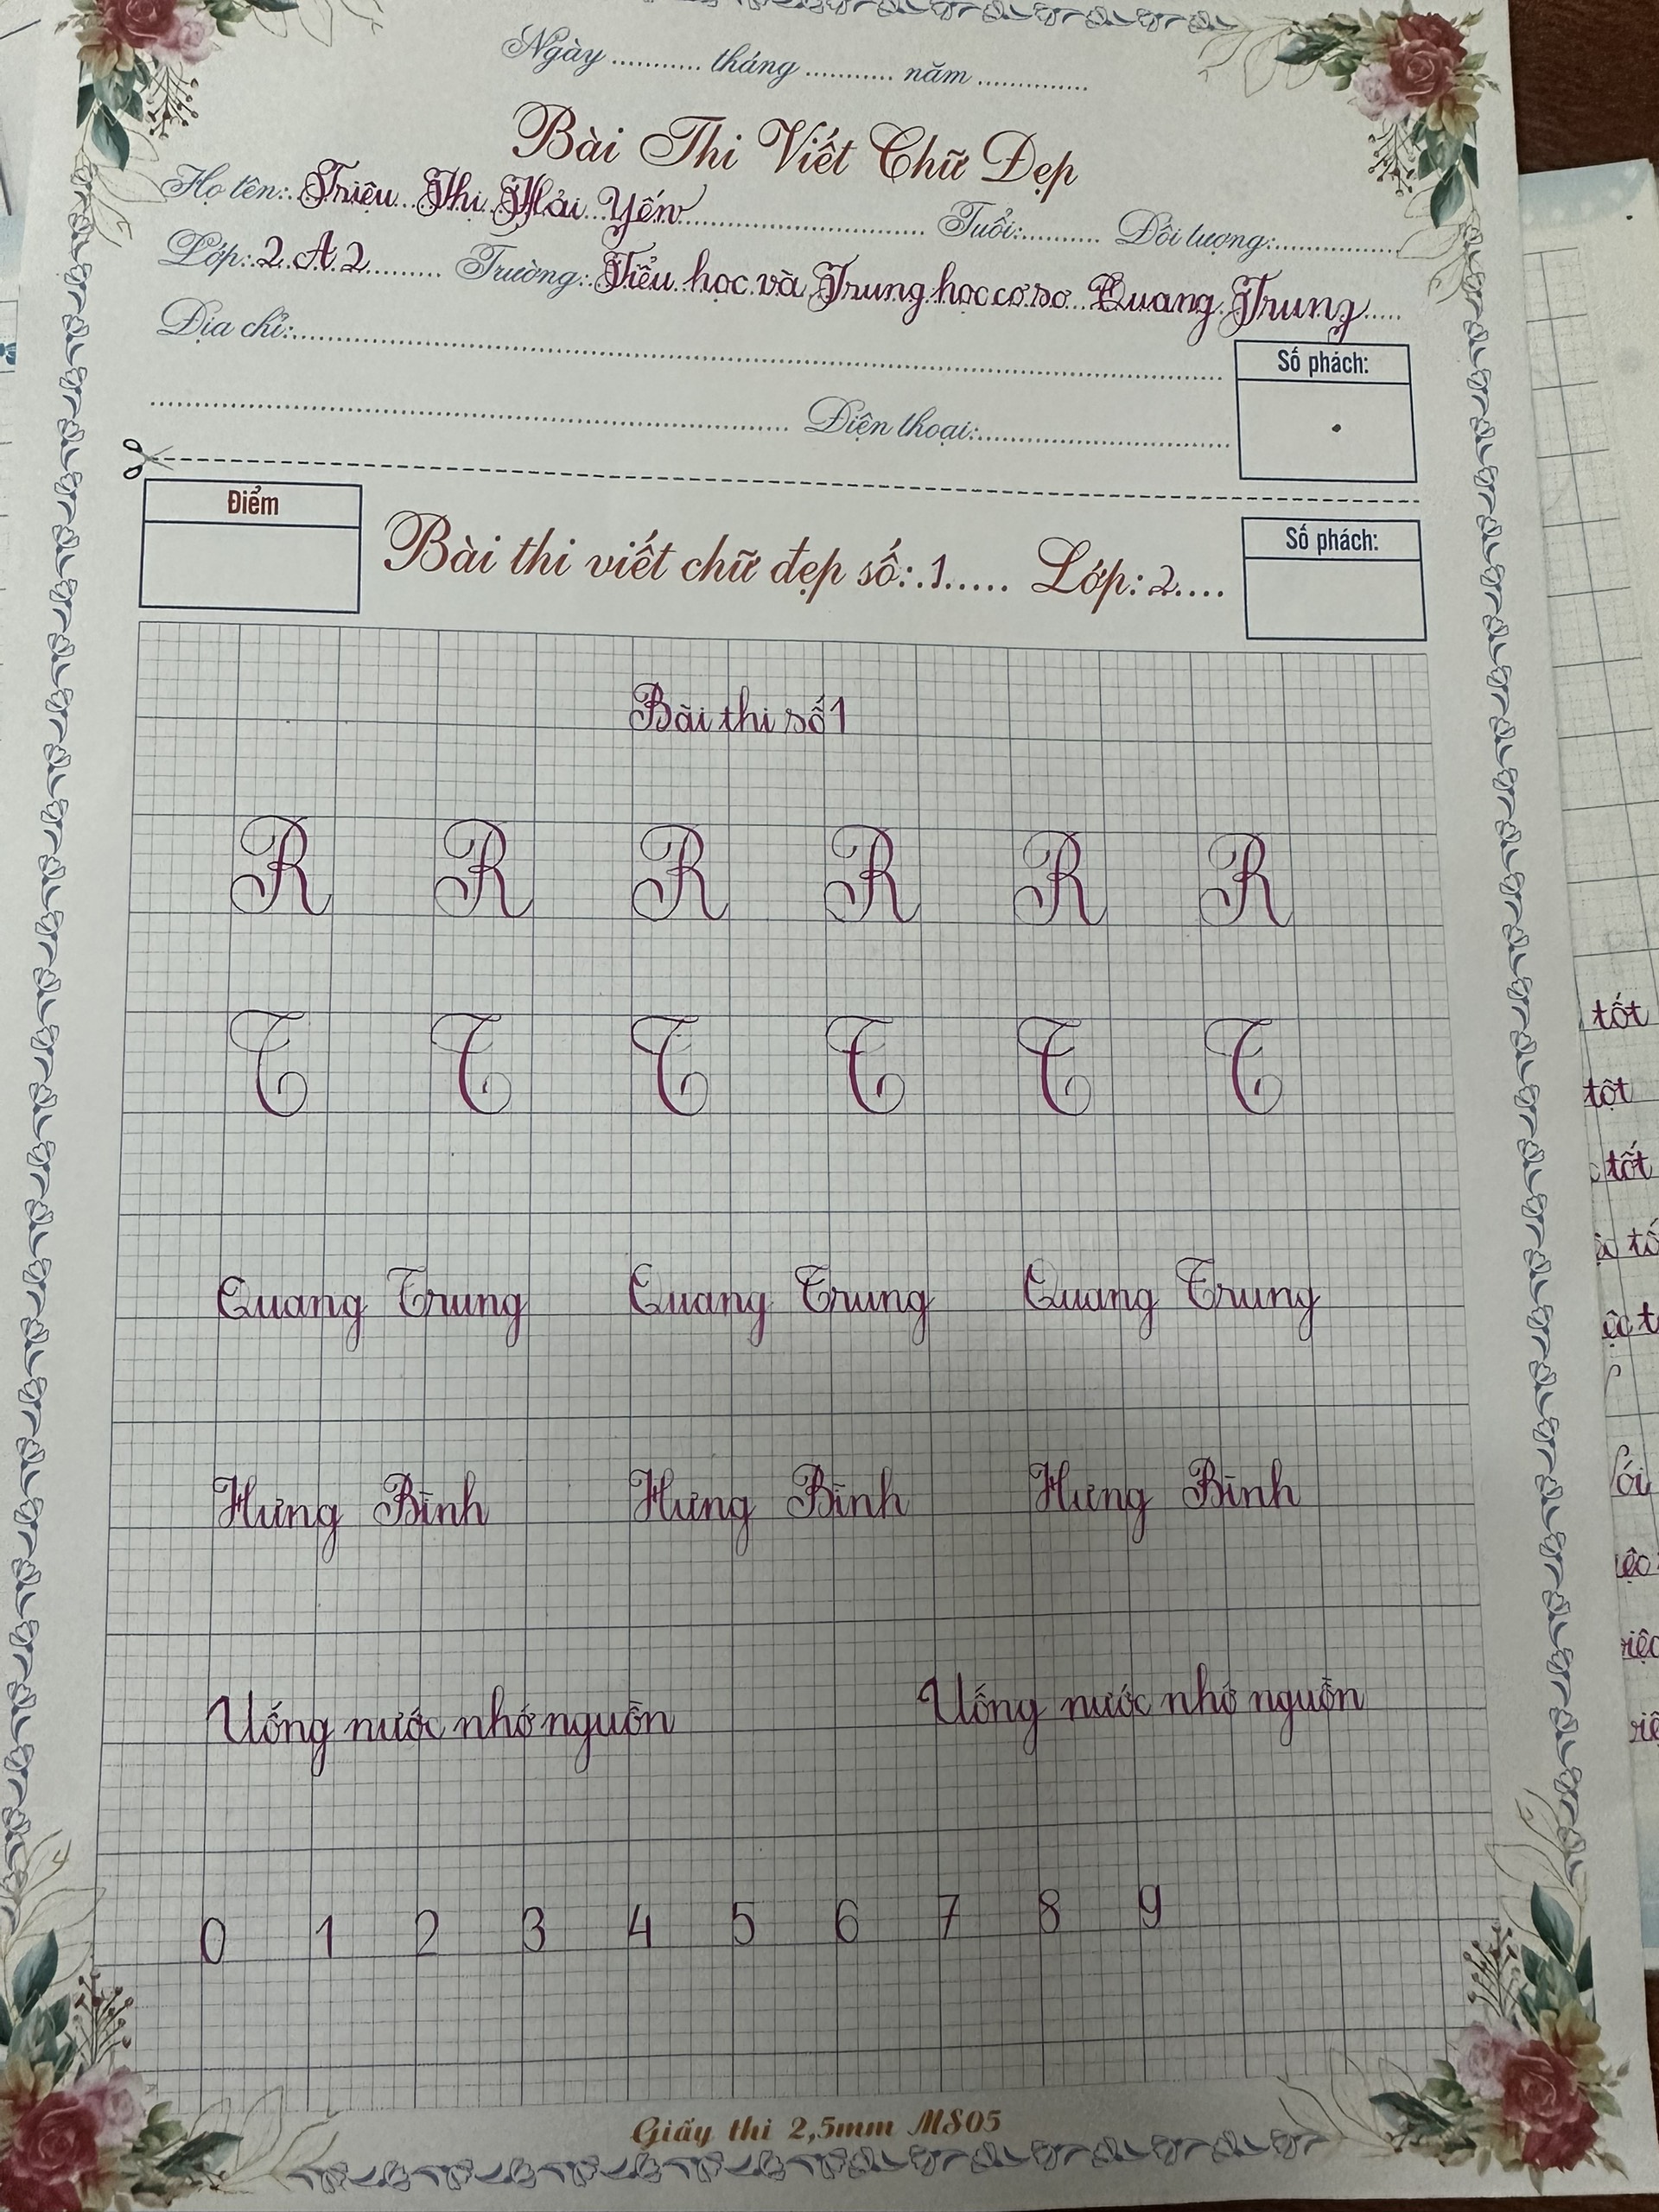 Ngày ........... tháng ........... năm ..............
Bài Thi Viết Chữ Đẹp
Họ tên: Triệu Thị Hải Yến Tuổi: Đối tượng:
Lớp: 2 A 2 Trường: Tiểu học và Trung học cơ sơ Quang Trung
Địa chỉ:
Số phách:
Điện thoại:
Điểm
Bài thi viết chữ đẹp số: 1 Lớp: 2
Số phách:
Bài thi số 1
R R R R R R
T T T T T T
Quang Trung Quang Trung Quang Trung
Hưng Bình Hưng Bình Hưng Bình
Uống nước nhớ nguồn Uống nước nhớ nguồn
0 1 2 3 4 5 6 7 8 9
Giấy thi 2,5mm MS05
tốt
tột
tốt